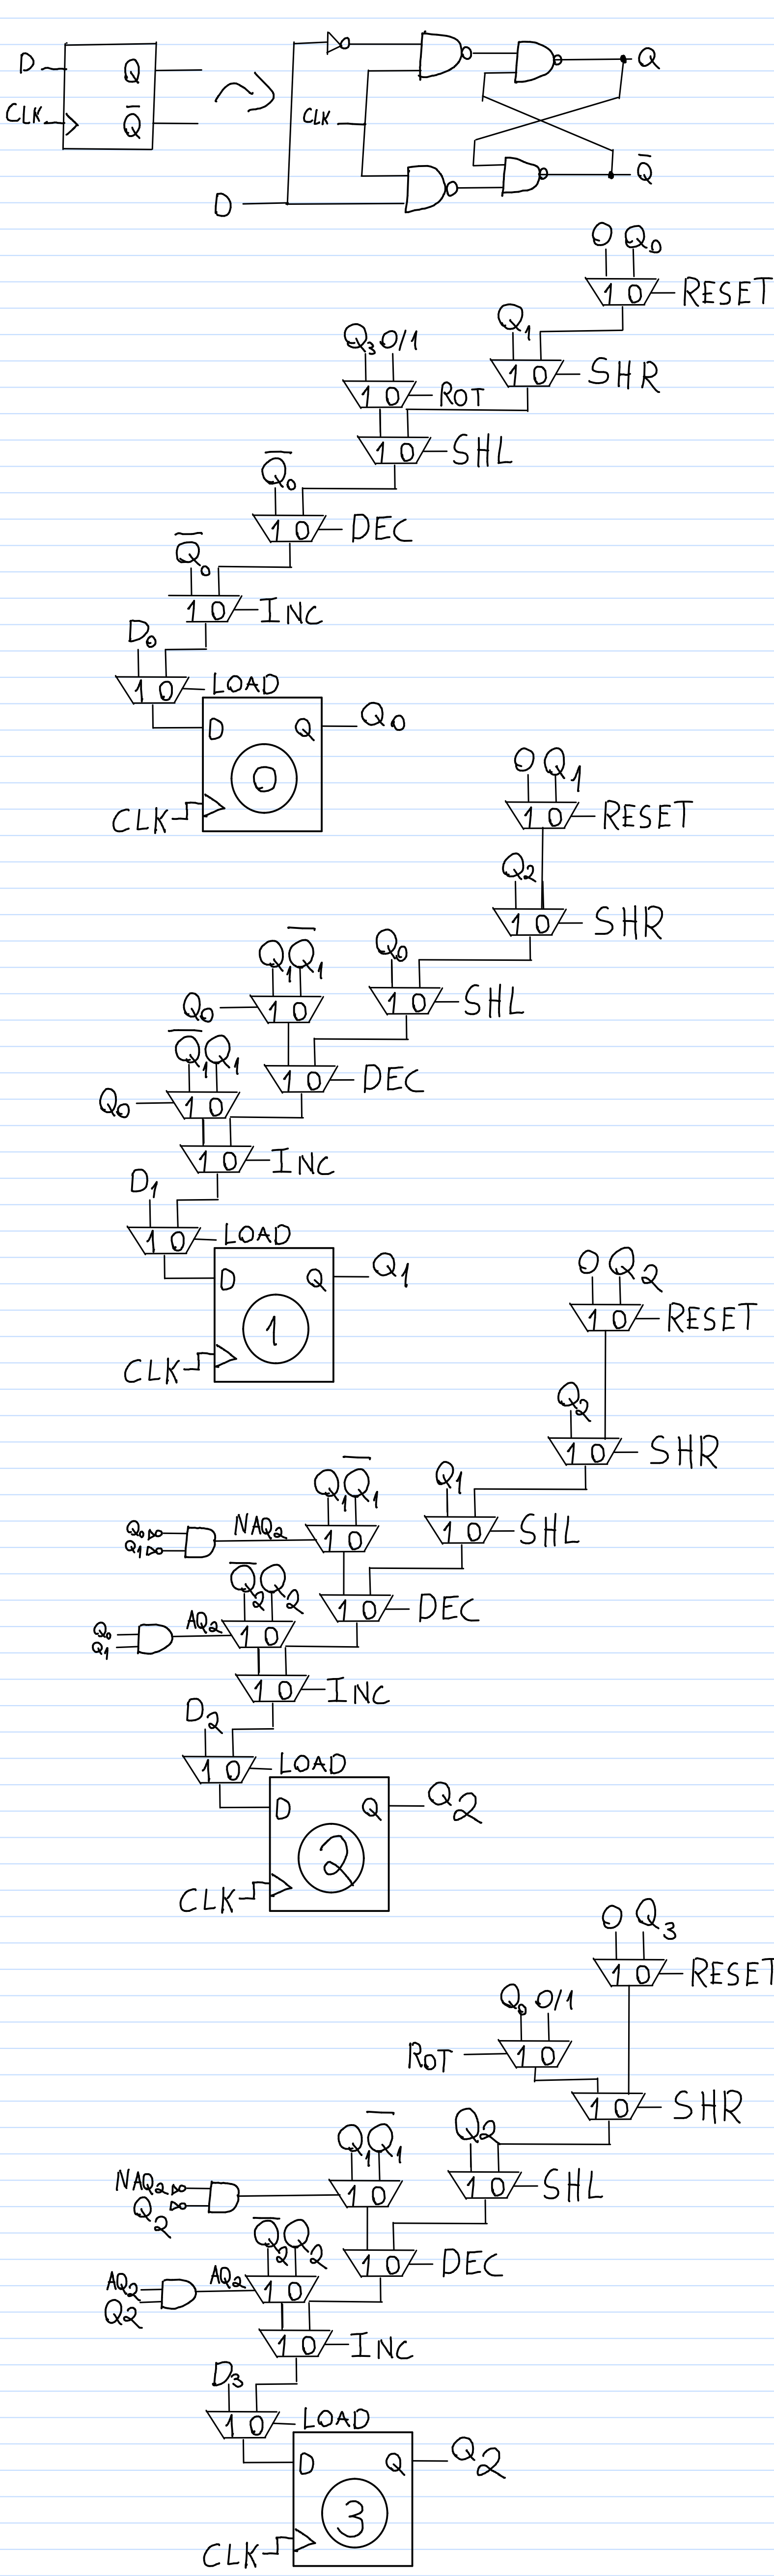 D Q
CLK Q̅
CLK
Q
Q̅
D
0 Q0
1 0 RESET
Q1
1 0 SHR
Q3 0/1
1 0 ROT
1 0 SHL
Q̅0
1 0 DEC
Q̅0
1 0 INC
D0
1 0 LOAD
D Q Q0
0
CLK
0 Q1
1 0 RESET
Q2
1 0 SHR
Q0
1 0 SHL
Q1 Q̅1
Q0 1 0
1 0 DEC
Q̅1 Q1
Q0 1 0
1 0 INC
D1
1 0 LOAD
D Q Q1
1
CLK
0 Q2
1 0 RESET
Q2
1 0 SHR
Q1
1 0 SHL
Q1 Q̅1
Q0
Q1
NAQ2 1 0
1 0 DEC
Q̅2 Q2
Q0
Q1
AQ2 1 0
1 0 INC
D2
1 0 LOAD
D Q Q2
2
CLK
0 Q3
1 0 RESET
Q0 0/1
ROT 1 0
1 0 SHR
Q2
1 0 SHL
Q1 Q̅1
NAQ2
Q2
1 0
1 0 DEC
Q̅2 Q2
AQ2
Q2
AQ2 1 0
1 0 INC
D3
1 0 LOAD
D Q Q2
3
CLK